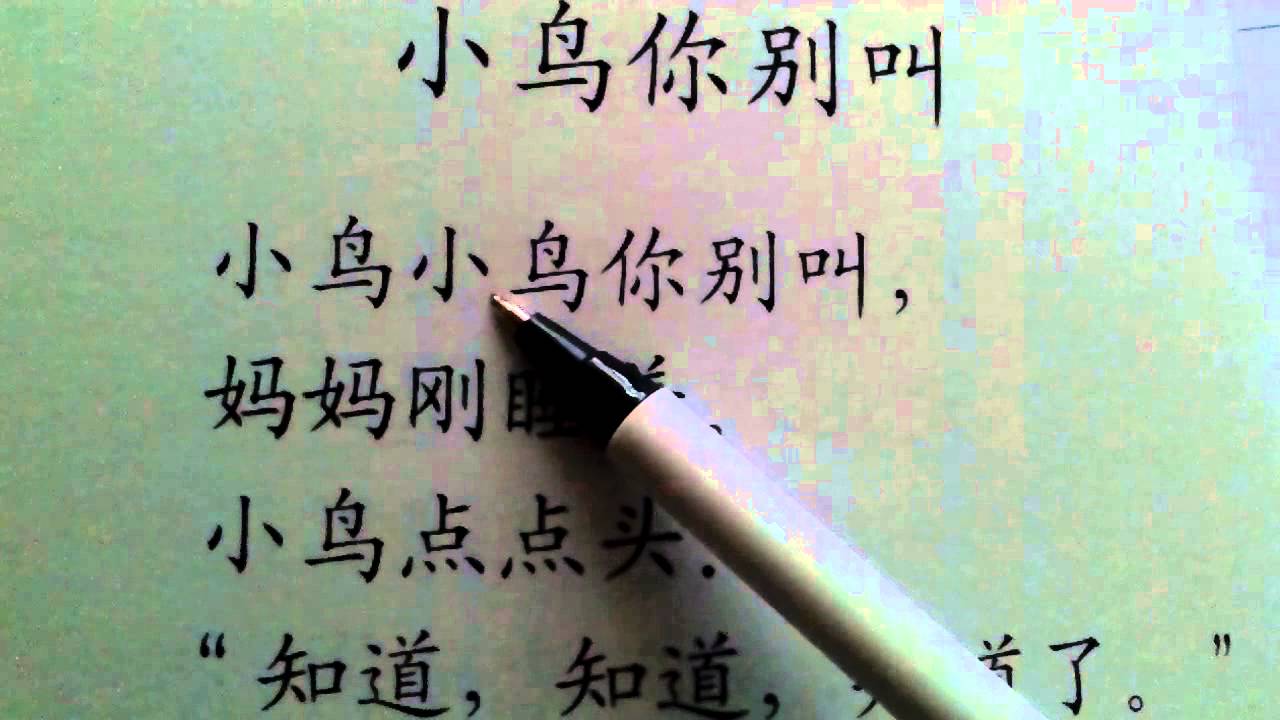 小鸟你别叫
小鸟小鸟你别叫，
妈妈刚睡着，
小鸟点点头：
“知道，知道，知道了。”